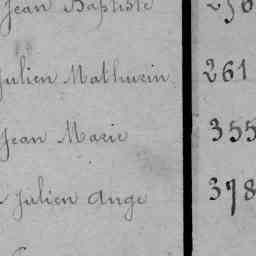 Jean Baptiste 256
Julien Mathurin 261
Jean Marie 355
Julien Ange 378